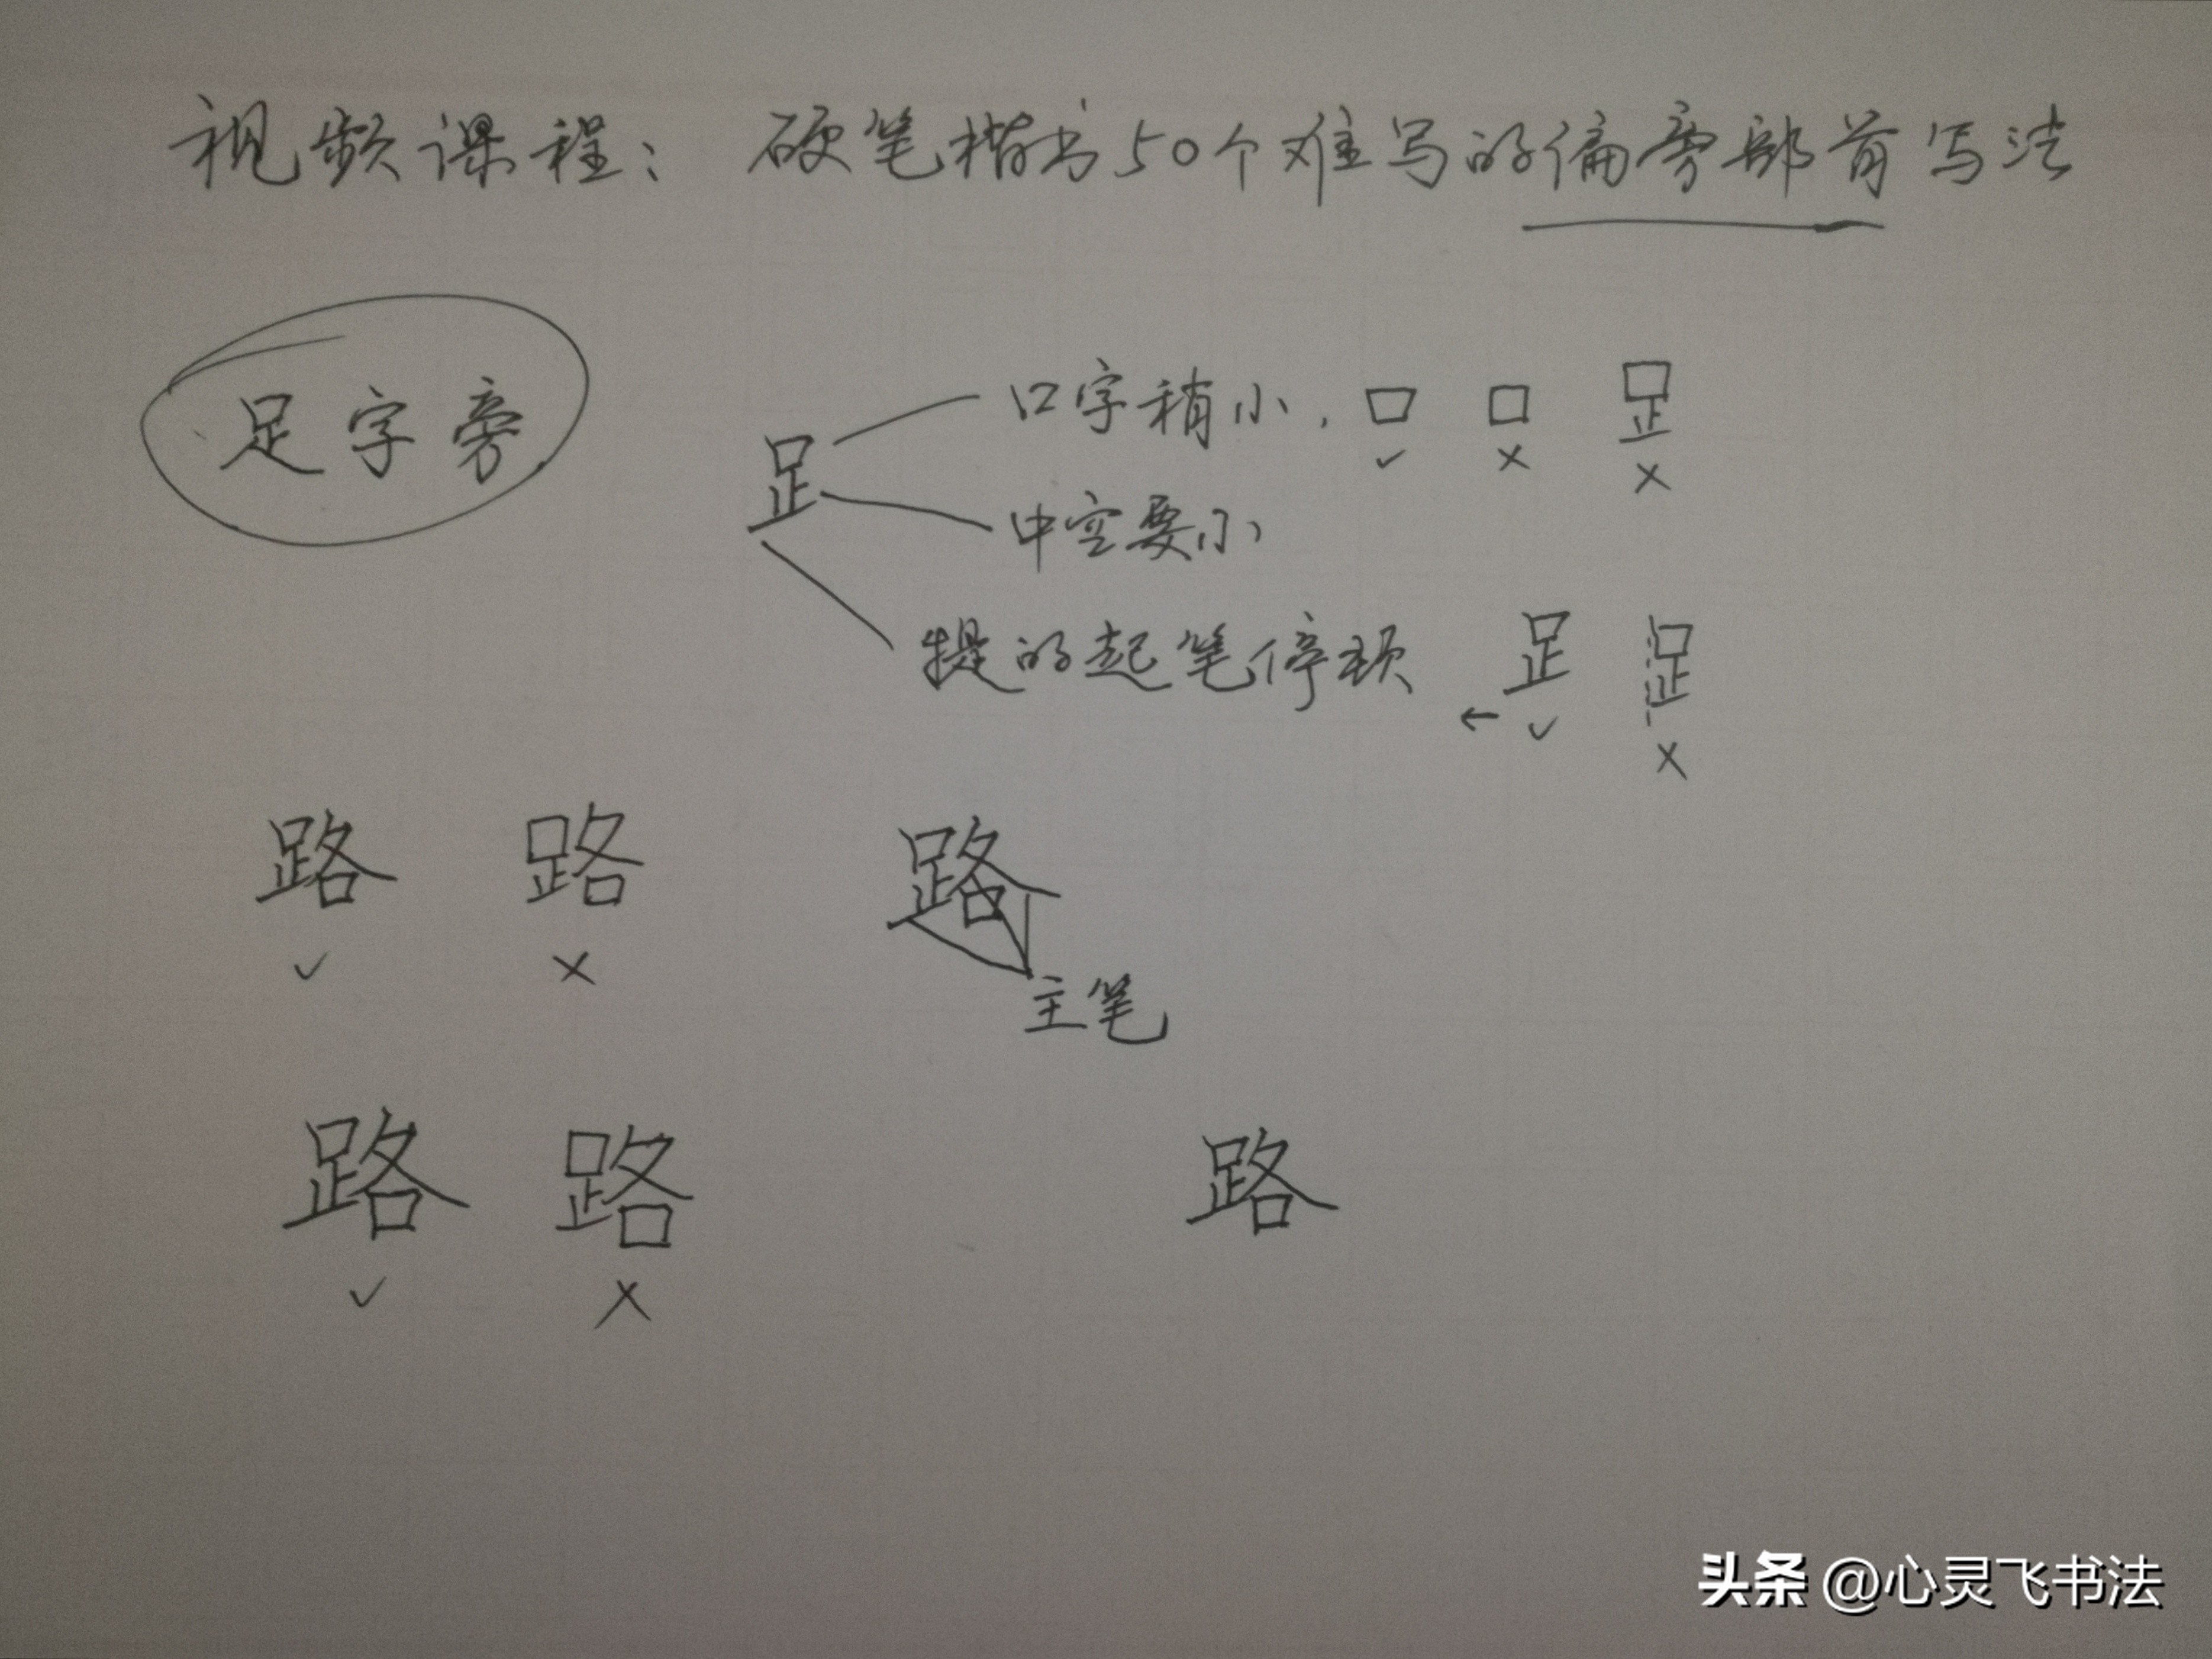 视频课程：硬笔楷书50个难写的偏旁部首写法
足字旁
𧾷 口字稍小，口 ✓ 口 × 𧾷 ×
中空要小
提的起笔停顿 ← 𧾷 ✓ 𧾷 ×
路 路 路
✓ ×
主笔
路 路 路
✓ ×
头条 @心灵飞书法